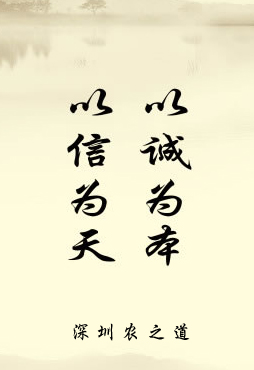 以诚为本
以信为天
深圳农之道